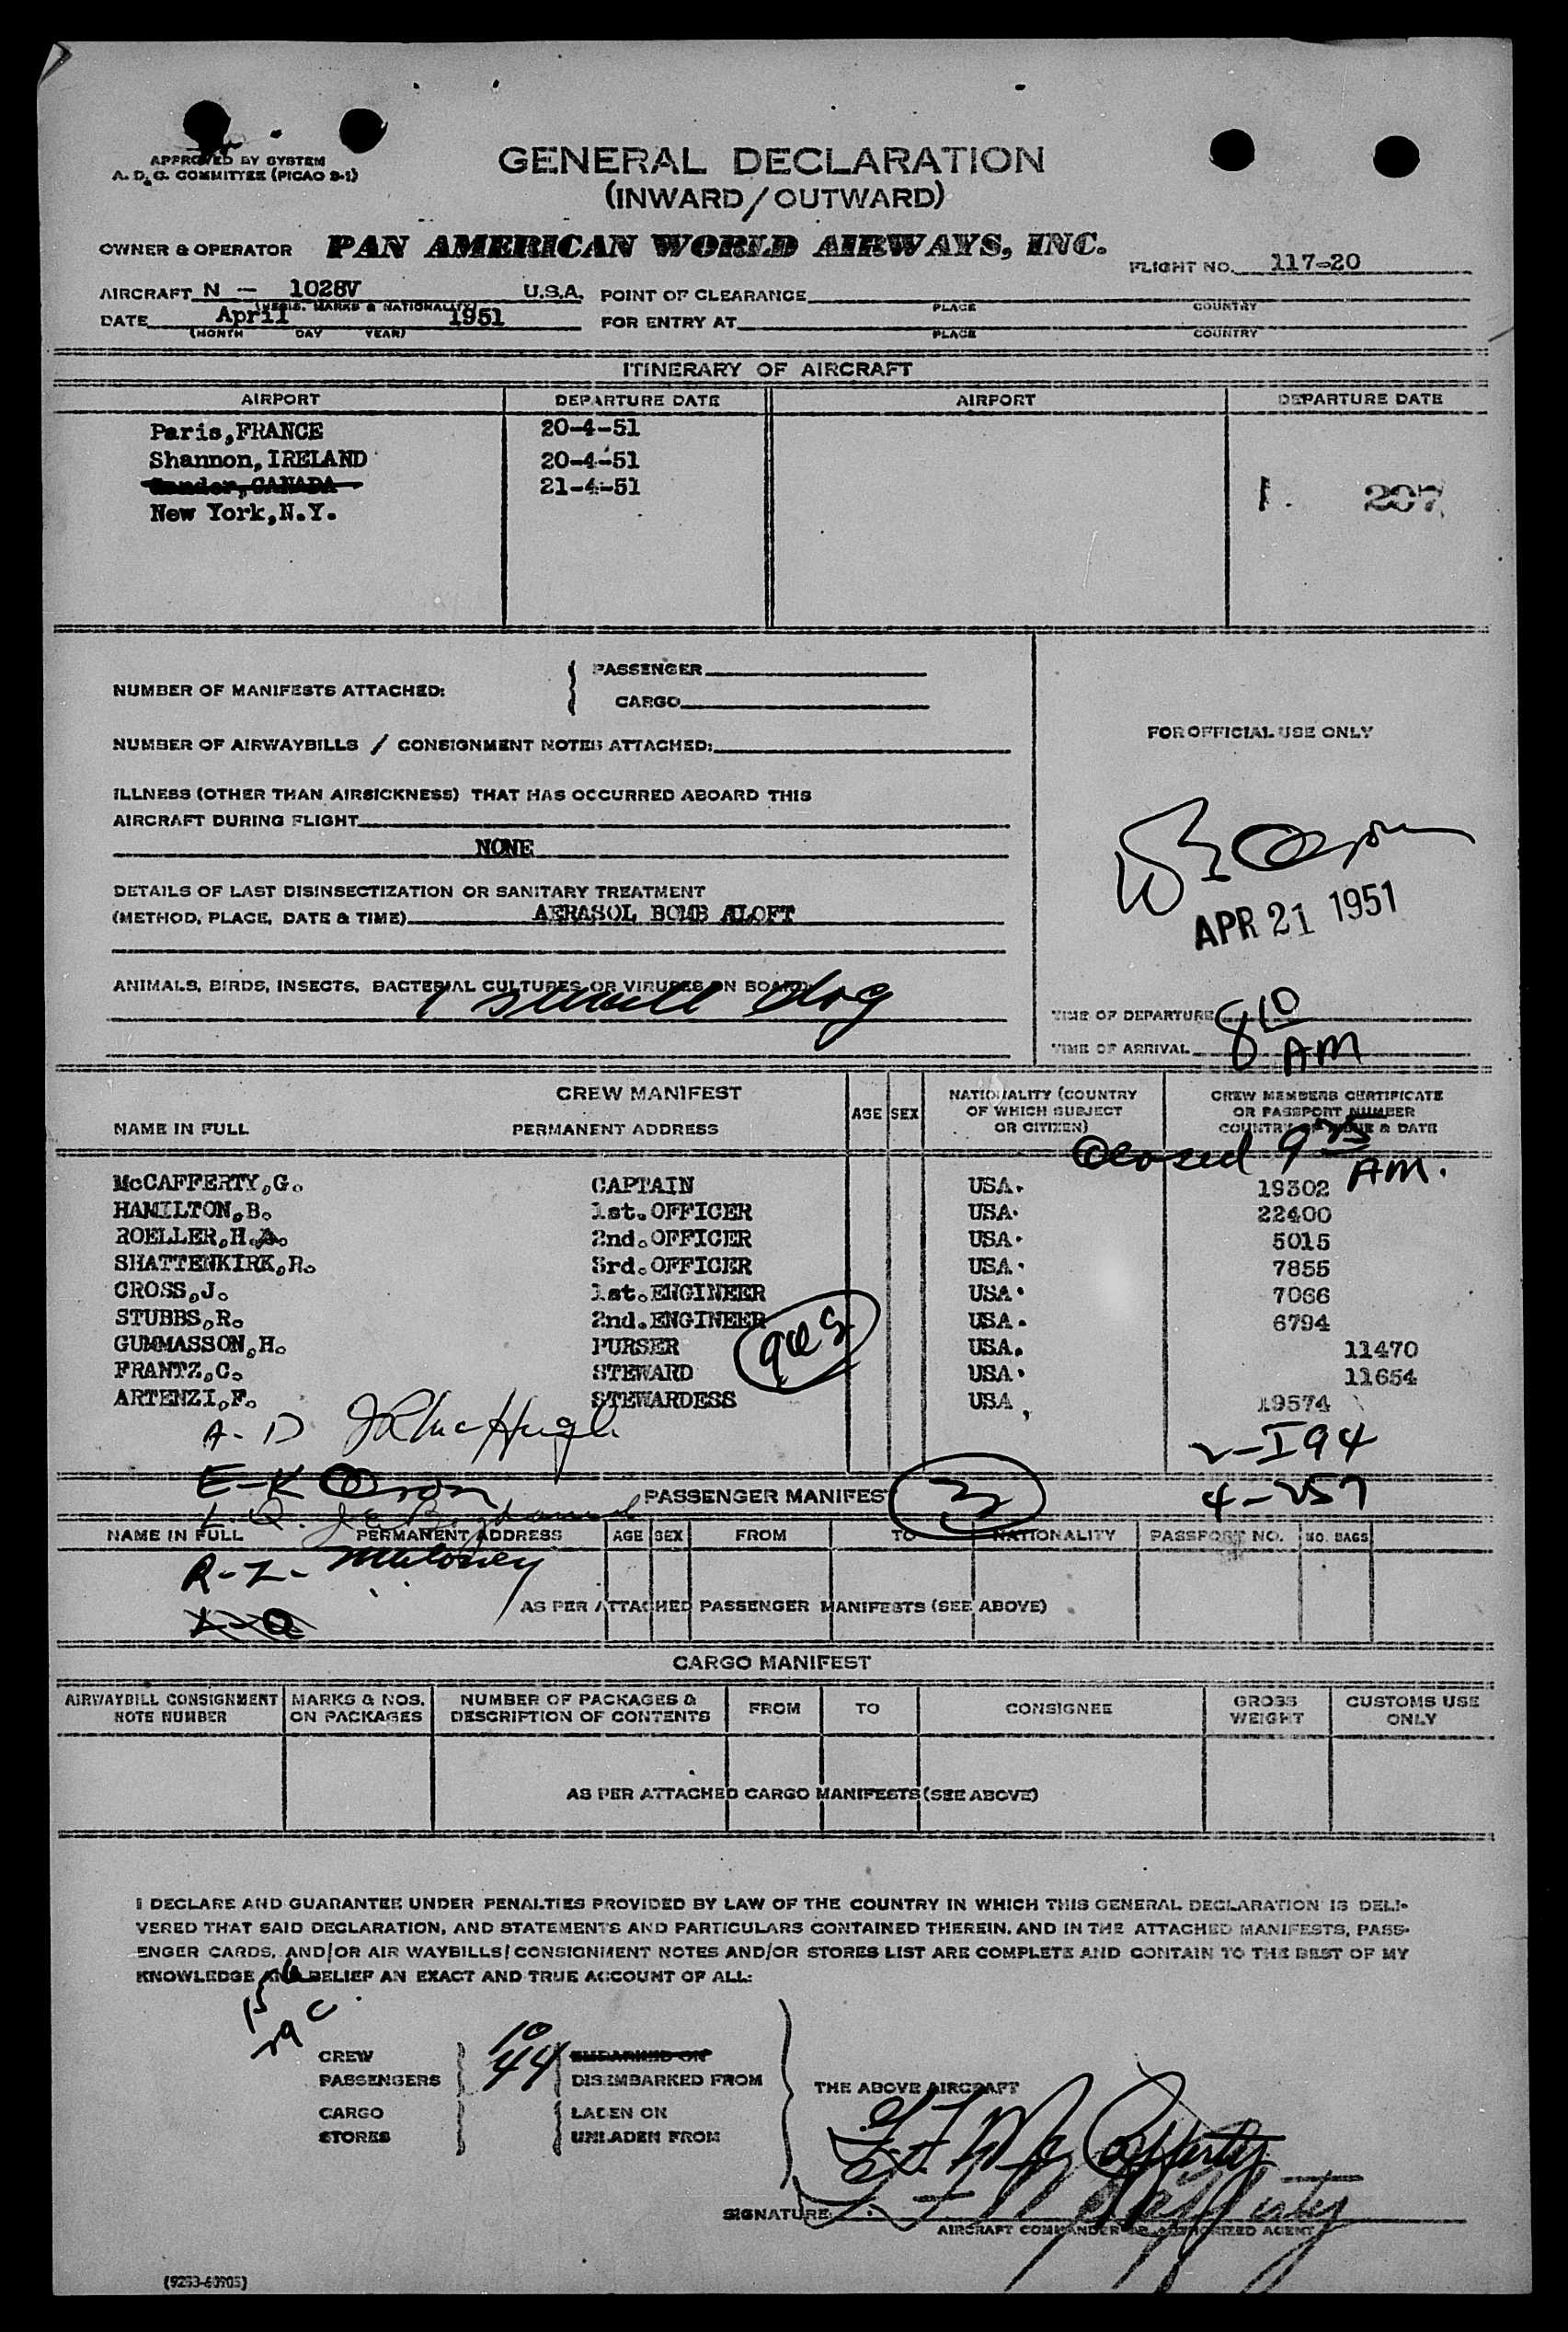 APPROVED BY SYSTEM
A. D. G. COMMITTEE (PICAO S-1)
GENERAL DECLARATION
(INWARD/OUTWARD)
OWNER & OPERATOR PAN AMERICAN WORLD AIRWAYS, INC.
FLIGHT NO. 117-20
AIRCRAFT N - 1028V U.S.A. POINT OF CLEARANCE
(REGIS. MARKS & NATIONALITY) PLACE COUNTRY
DATE April 1951 FOR ENTRY AT
(MONTH DAY YEAR) PLACE COUNTRY
ITINERARY OF AIRCRAFT
AIRPORT DEPARTURE DATE AIRPORT DEPARTURE DATE
Paris,FRANCE 20-4-51
Shannon,IRELAND 20-4-51
Gander,CANADA 21-4-51
New York,N.Y.
1. 207
NUMBER OF MANIFESTS ATTACHED: { PASSENGER
CARGO
NUMBER OF AIRWAYBILLS / CONSIGNMENT NOTES ATTACHED:
FOR OFFICIAL USE ONLY
ILLNESS (OTHER THAN AIRSICKNESS) THAT HAS OCCURRED ABOARD THIS
AIRCRAFT DURING FLIGHT
NONE
DETAILS OF LAST DISINSECTIZATION OR SANITARY TREATMENT
(METHOD, PLACE, DATE & TIME) AERASOL BOMB ALOFT
APR 21 1951
ANIMALS, BIRDS, INSECTS, BACTERIAL CULTURES OR VIRUSES ON BOARD:
1 small dog
TIME OF DEPARTURE
TIME OF ARRIVAL 8 10 AM
CREW MANIFEST
NAME IN FULL PERMANENT ADDRESS AGE SEX NATIONALITY (COUNTRY OF WHICH SUBJECT OR CITIZEN) CREW MEMBERS CERTIFICATE OR PASSPORT NUMBER COUNTRY OF ISSUE & DATE
Closed 9 35 AM.
McCAFFERTY,G. CAPTAIN USA. 19302
HAMILTON,B. 1st. OFFICER USA. 22400
ROELLER,H. 2nd. OFFICER USA. 5015
SHATTENKIRK,R. 3rd. OFFICER USA. 7855
CROSS,J. 1st. ENGINEER USA. 7066
STUBBS,R. 2nd. ENGINEER USA. 6794
GUMMASSON,H. PURSER USA. 11470
FRANTZ,C. STEWARD USA. 11654
ARTENZI,F. STEWARDESS USA. 19574
A-D JR McHugh
2-I94
E-K Olson
4-257
L-Q
PASSENGER MANIFEST 3
NAME IN FULL PERMANENT ADDRESS AGE SEX FROM TO NATIONALITY PASSPORT NO. NO. BAGS
R-Z- Maloney
AS PER ATTACHED PASSENGER MANIFESTS (SEE ABOVE)
L-Q
CARGO MANIFEST
AIRWAYBILL CONSIGNMENT NOTE NUMBER MARKS & NOS. ON PACKAGES NUMBER OF PACKAGES & DESCRIPTION OF CONTENTS FROM TO CONSIGNEE GROSS WEIGHT CUSTOMS USE ONLY
AS PER ATTACHED CARGO MANIFESTS (SEE ABOVE)
I DECLARE AND GUARANTEE UNDER PENALTIES PROVIDED BY LAW OF THE COUNTRY IN WHICH THIS GENERAL DECLARATION IS DELI-
VERED THAT SAID DECLARATION, AND STATEMENTS AND PARTICULARS CONTAINED THEREIN, AND IN THE ATTACHED MANIFESTS, PASS-
ENGER CARDS, AND/OR AIR WAYBILLS/CONSIGNMENT NOTES AND/OR STORES LIST ARE COMPLETE AND CONTAIN TO THE BEST OF MY
KNOWLEDGE AND BELIEF AN EXACT AND TRUE ACCOUNT OF ALL:
CREW 10 EMBARKED ON
PASSENGERS 44 DISEMBARKED FROM
THE ABOVE AIRCRAFT
CARGO LADEN ON
STORES UNLADEN FROM
SIGNATURE
AIRCRAFT COMMANDER OR AUTHORIZED AGENT
(9253-60905)